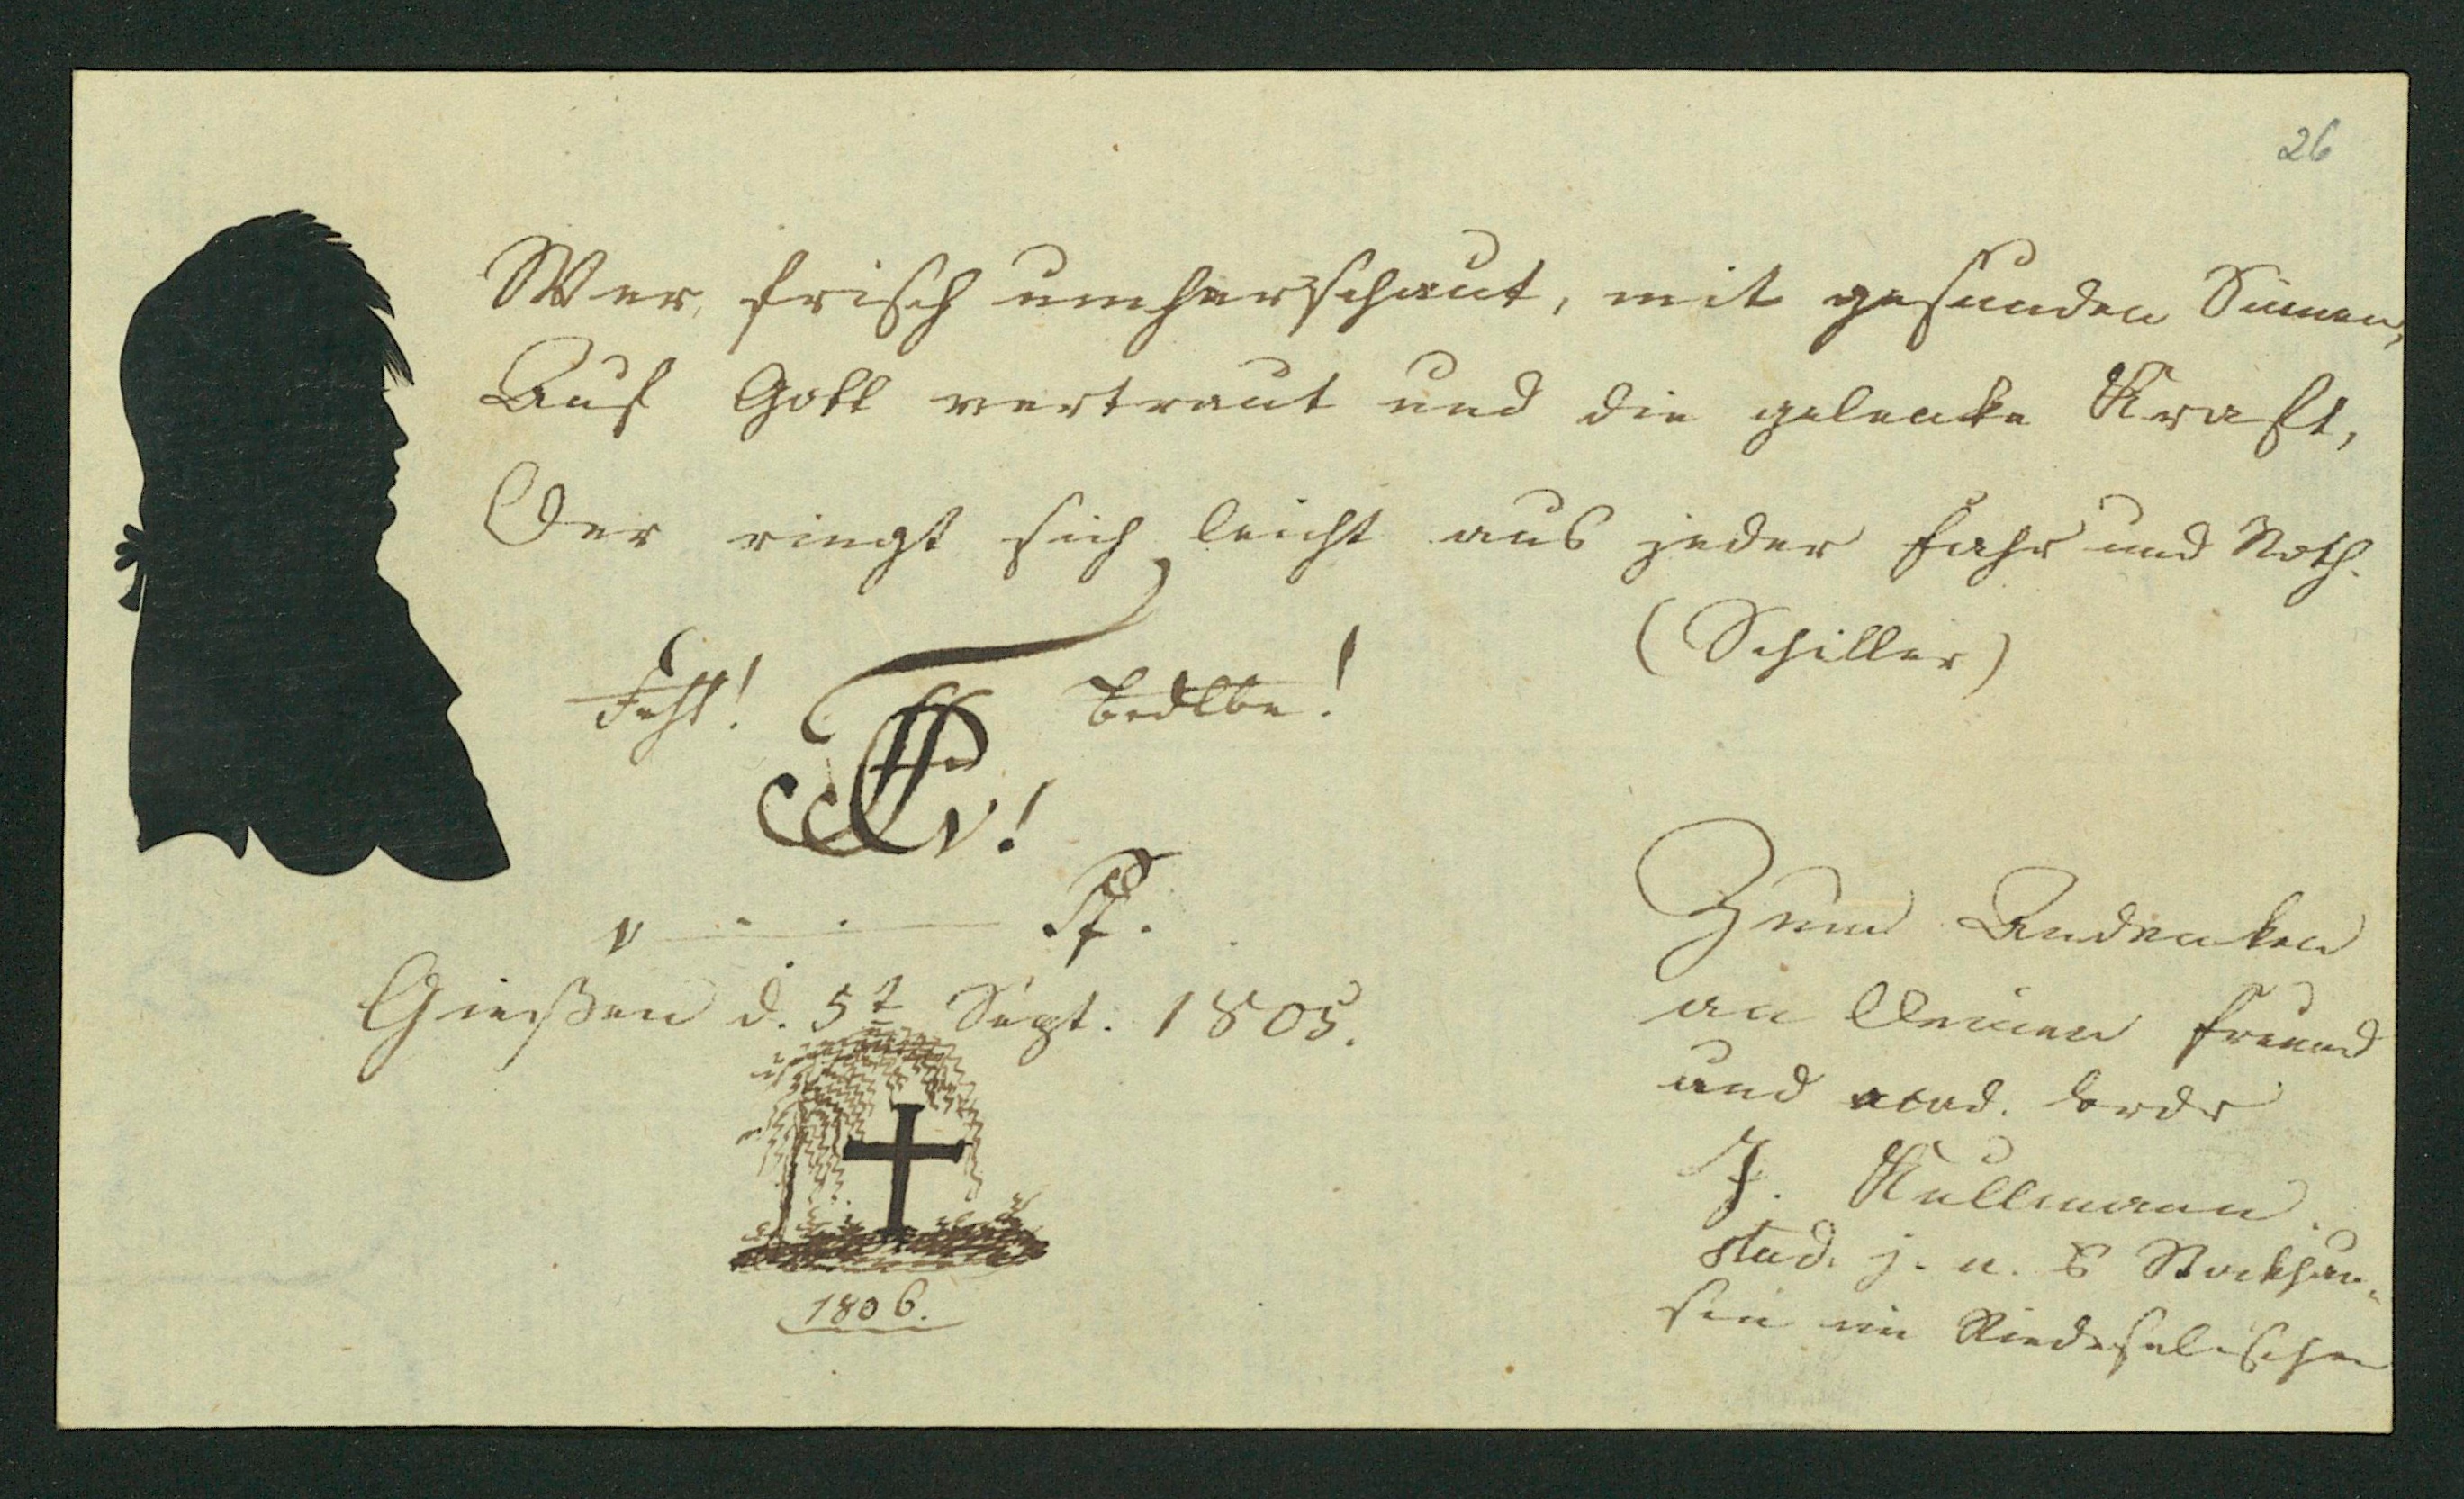 26
Wer, frisch umherschaut, mit gesunden Sinnen,
Auf Gott vertraut und die gelenke Kraft,
Der ringt sich leicht aus jeder Fahr und Noth.
(Schiller)
Giessen d. 5t Sept. 1805.
1806.
Zum Andenken
an Deinen Freund
und acad.
J. Kullmann.
stud. j. a. Stockhau-
sen im Riedeselischen